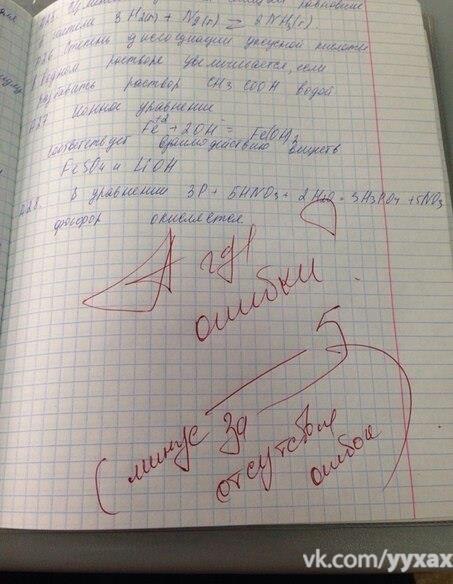 в системе 3H₂(г) + N₂(г) = 2NH₃(г).
Д26 Степень диссоциации уксусной кислоты
в водном растворе увеличивается, если
разбавить раствор CH3COOH водой
Д27 Ионное уравнение
Fe+2 + 2OH- = Fe(OH)2
соответствует взаимодействию веществ
FeSO4 и LiOH
Д28 В уравнении 3P + 5HNO3 + 2H2O = 3H3PO4 + 5NO
фосфор окисляется.
А где
ошибки
5
(минус за
отсутствие
ошибок)
vk.com/yyxax